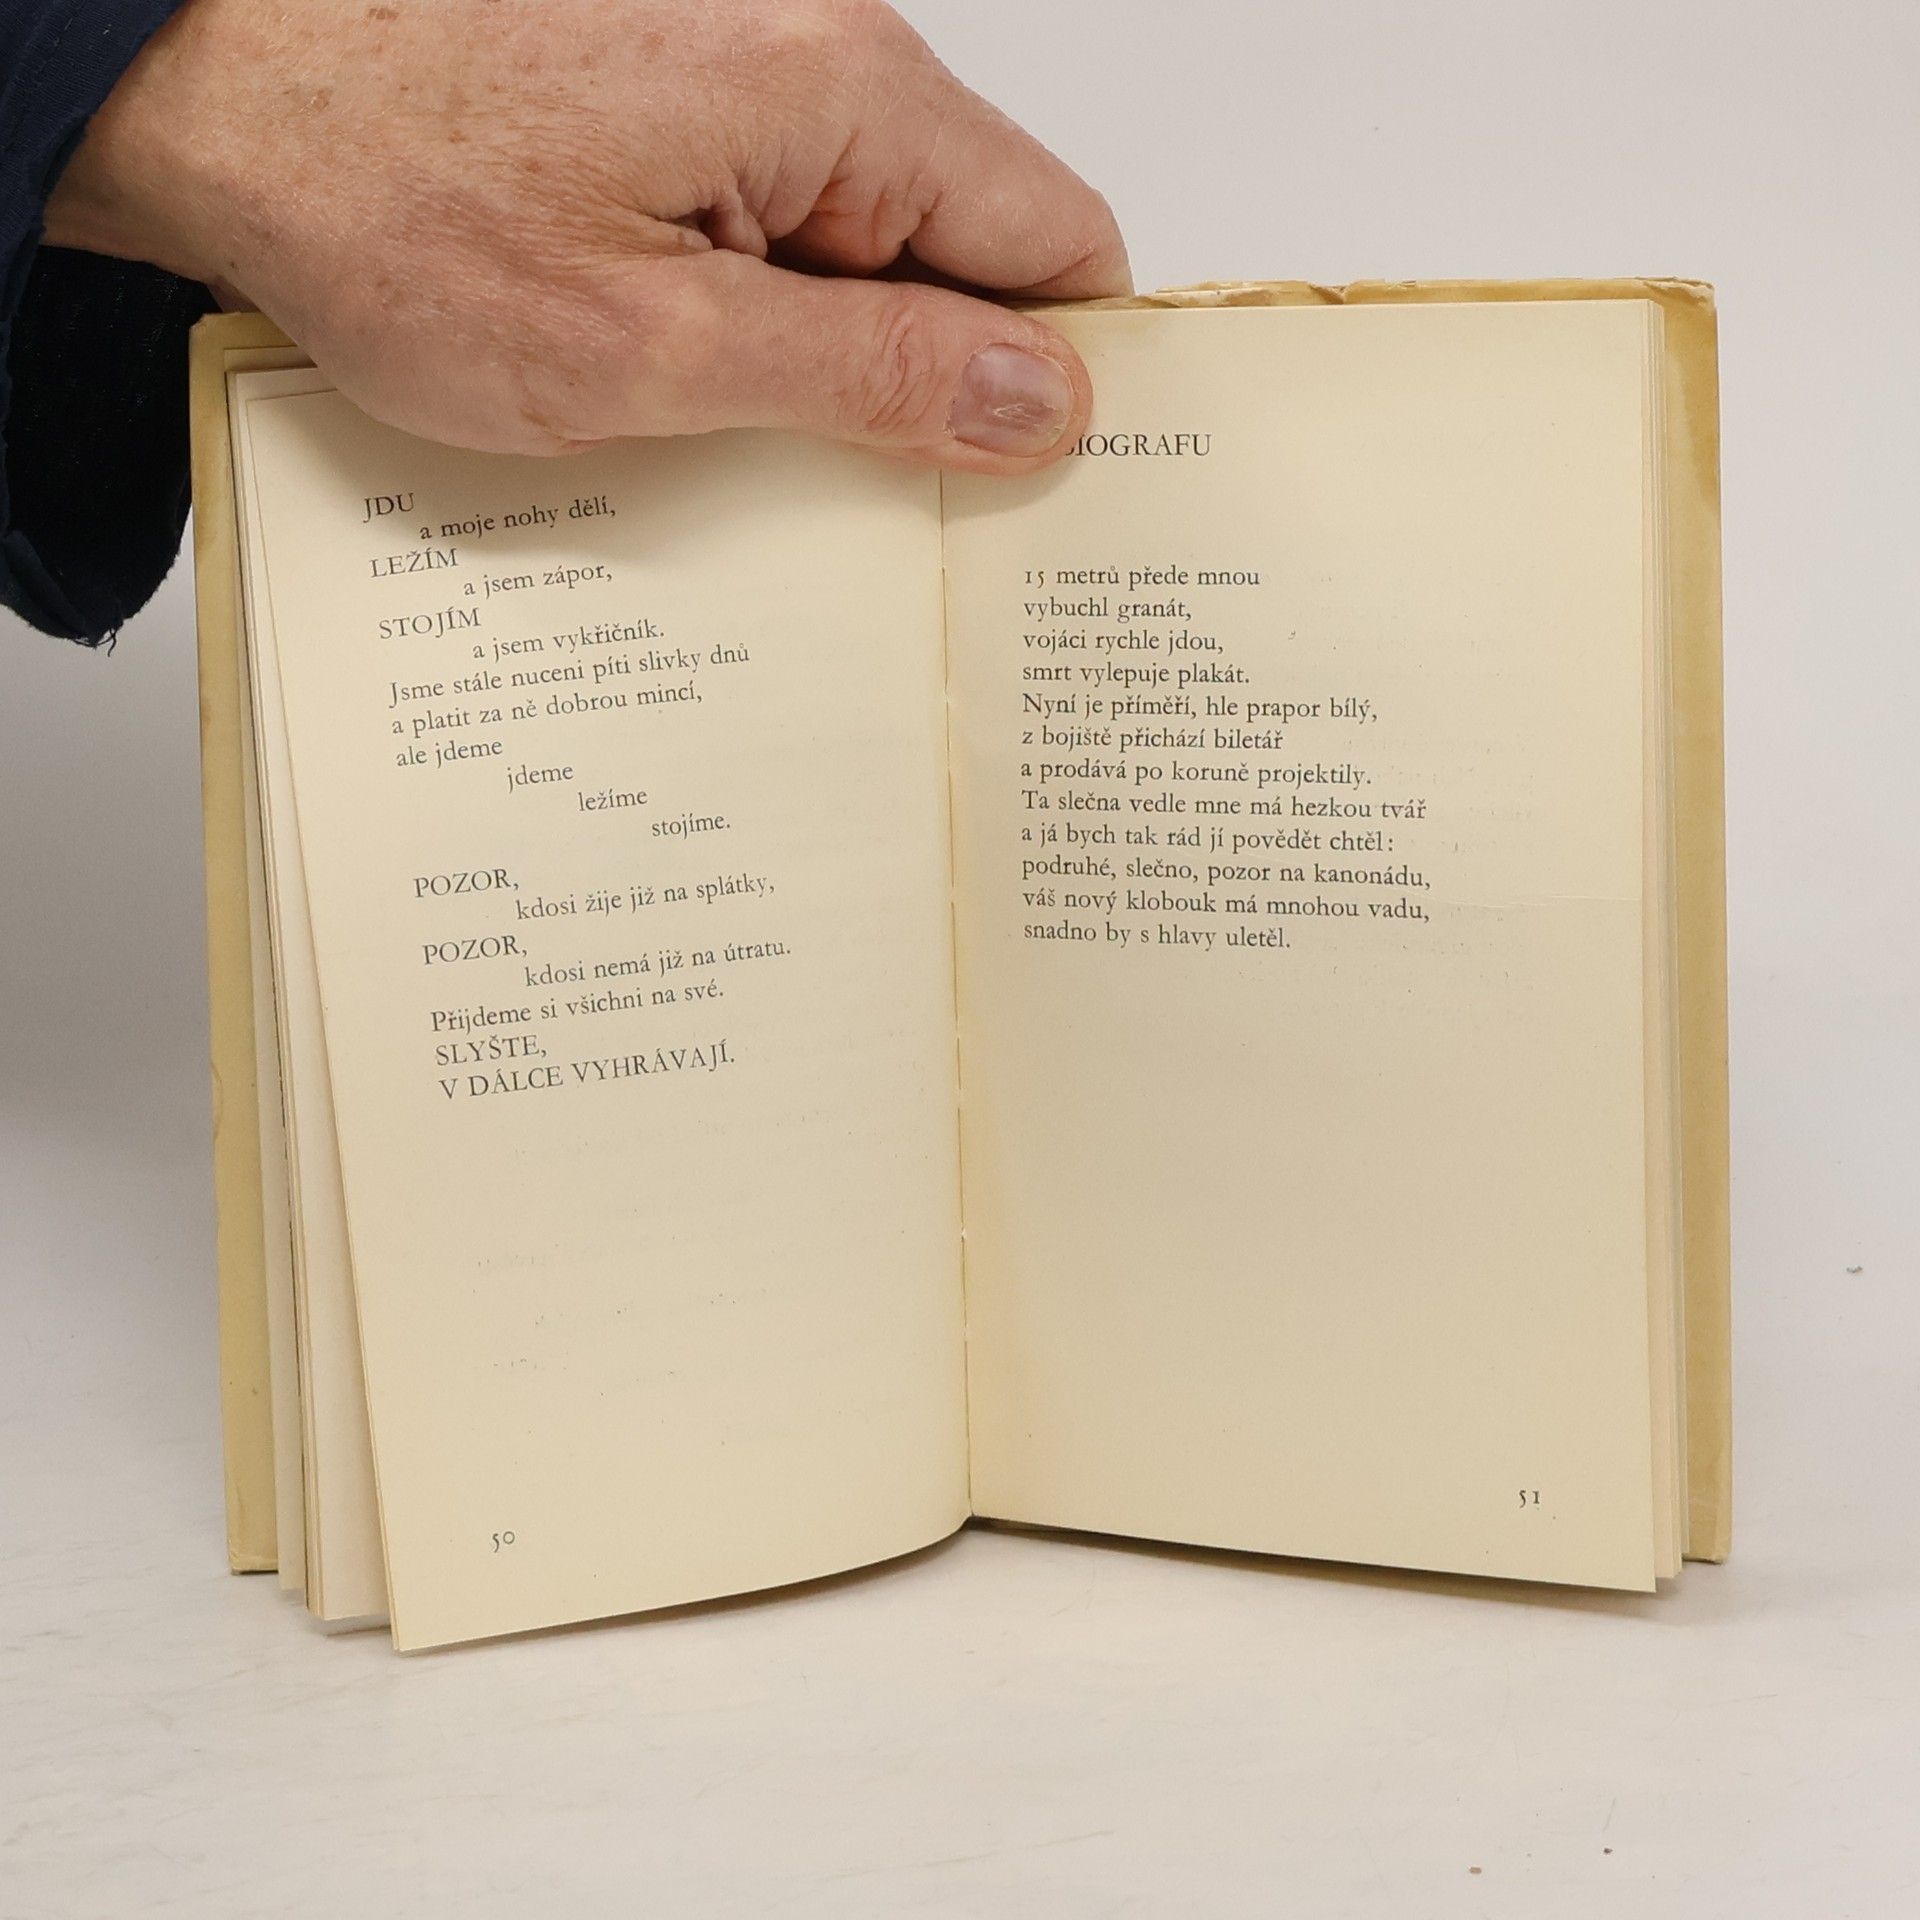 JDU
a moje nohy dělí,
LEŽÍM
a jsem zápor,
STOJÍM
a jsem vykřičník.
Jsme stále nuceni píti slivky dnů
a platit za ně dobrou mincí,
ale jdeme
jdeme
ležíme
stojíme.
POZOR,
kdosi žije již na splátky,
POZOR,
kdosi nemá již na útratu.
Přijdeme si všichni na své.
SLYŠTE,
V DÁLCE VYHRÁVAJÍ.
50
BIOGRAFU
15 metrů přede mnou
vybuchl granát,
vojáci rychle jdou,
smrt vylepuje plakát.
Nyní je příměří, hle prapor bílý,
z bojiště přichází biletář
a prodává po koruně projektily.
Ta slečna vedle mne má hezkou tvář
a já bych tak rád jí povědět chtěl:
podruhé, slečno, pozor na kanonádu,
váš nový klobouk má mnohou vadu,
snadno by s hlavy uletěl.
51